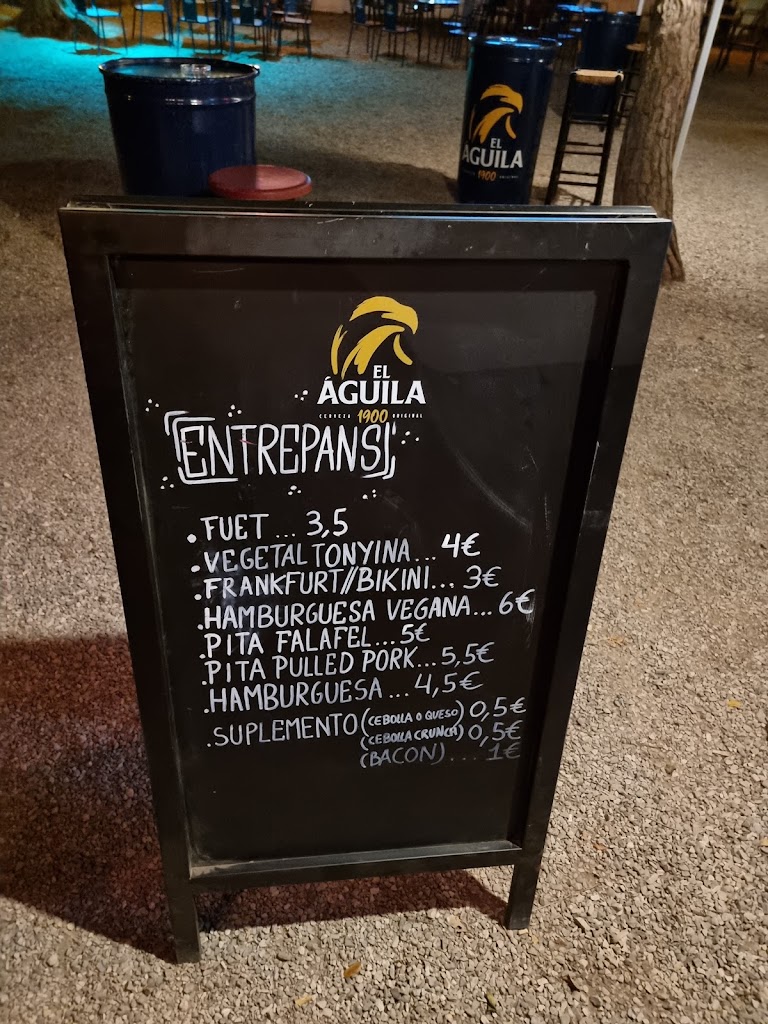 EL
AGUILA
1900
EL
ÁGUILA
CERVEZA 1900 ORIGINAL
ENTREPANS
. FUET ... 3,5
. VEGETAL TONYINA ... 4€
. FRANKFURT//BIKINI... 3€
. HAMBURGUESA VEGANA... 6€
. PITA FALAFEL ... 5€
. PITA PULLED PORK... 5,5€
. HAMBURGUESA ... 4,5€
. SUPLEMENTO (CEBOLLA O QUESO) 0,5€
(CEBOLLA CRUNCH) 0,5€
(BACON) .... 1€